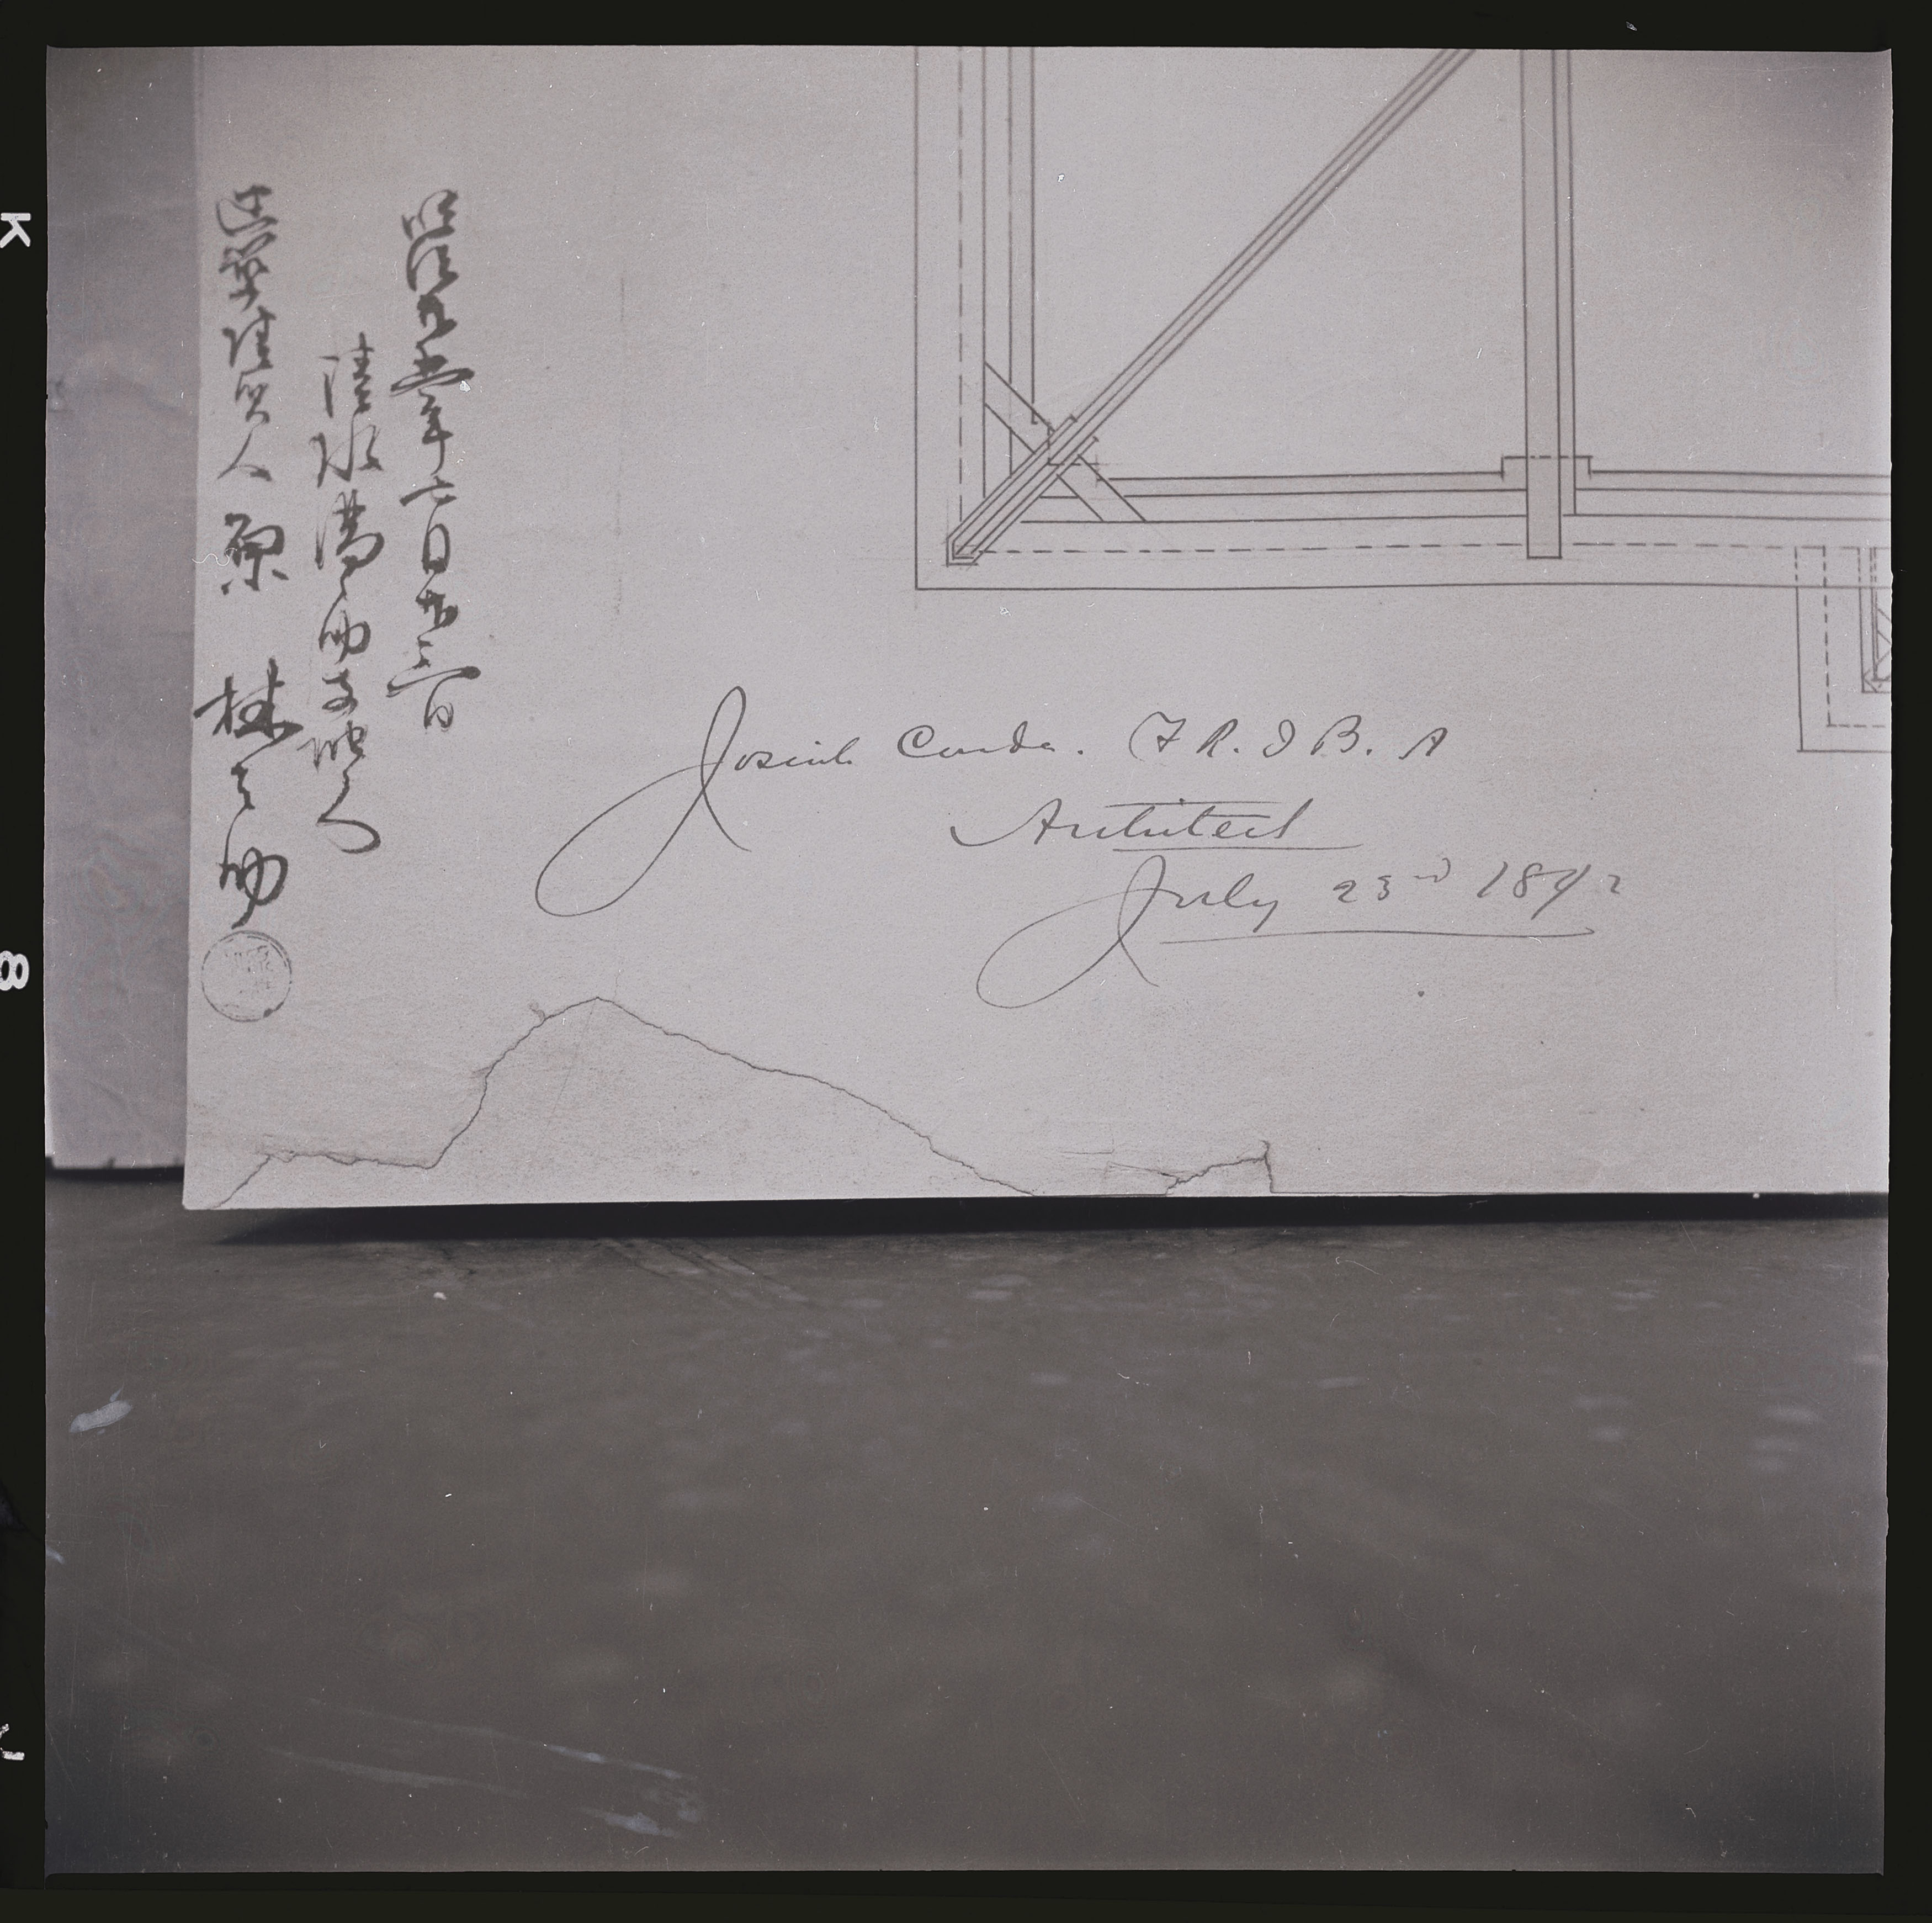 明治廿五年七月廿三日
清水満之助支配人
建築請負人 原 林之助
Josiah Conder. F R. I B. A
Architect
July 23rd 1892
K
8